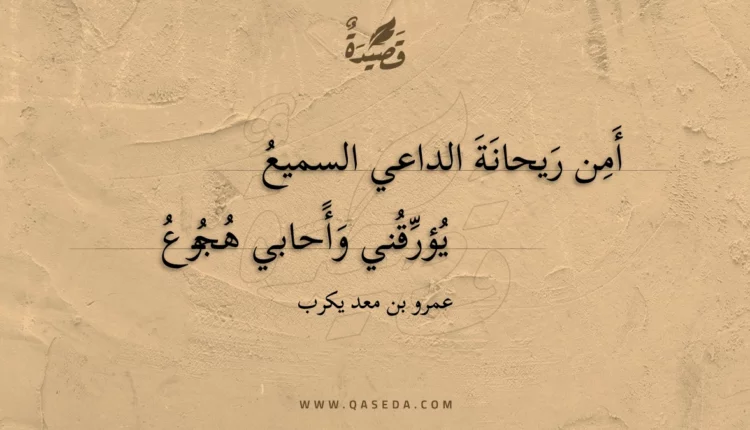 قَصِيدَةٌ
أَمِن رَيحانَةَ الداعي السميعُ
يُؤرِّقُني وَأًحابي هُجُوعُ
عمرو بن معد يكرب
WWW.QASEDA.COM